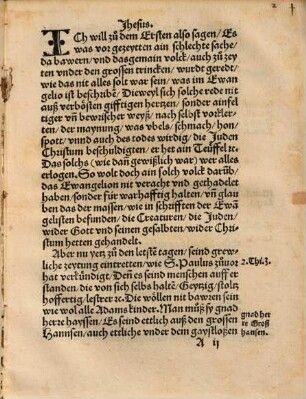 2
Jhesus.
ICh will zů dem Ersten also sagen/ Es
was vor gezeytten ain schlechte sache/
da bawern/ vnd das gemain volck/ auch zů zey
ten vnder den grossen trincken/ wurdt geredt/
wie das nit alles solt war sein/ was im Ewan
gelio ist beschribē/ Dieweyl sich solche rede nit
auß verbösten gifftigen hertzen/ sonder ainfel
tiger vñ bewischer weyß/ nach selbst
der maynung/ was vbels/ schmach/ hon/
spott/ vnnd auch des todes wirdig/ die Juden
Christum beschuldigten/ er het ain Teüffel ꝛc.
Das solchs (wie dan gewißlich war) wer alles
erlogen. So wolt doch ain solch volck darüb/
das Ewangelion nit veracht vnd gethadelet
haben/ sonder für warhafftig halten/ vñ glau
ben das der massen/ wie in schrifften der Ewā
gelisten befunden/ die Creaturen/ die Juden/
wider Gott vnd seinen gesalbten/ wider Chri-
stum hetten gehandelt.
Aber nu yetz zů den letstē tagen/ seind grew-
liche zeytung eintretten/ wie S. Paulus zůuor
hat verkündigt/ Deñ es seind menschen auffer
standen/ die von sich selbs haltē/ Geytzig/ stoltz
hoffertig/ lestrer ꝛc. Die wöllen nit bawren sein
wie wol alle Adams kinder. Man můß sy gnad
herr hayssen/ Es seind ettlich auß den grossen
Hannsen/ auch ettliche vnder dem gaystloßen
A ij
2. Thi. 3.
gnad her
re Groß
hansen.